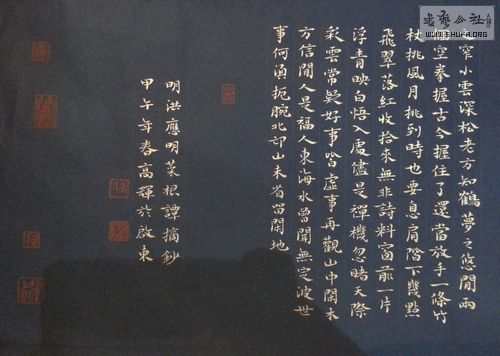 窄小雲深松老方知鶴夢之悠閒兩
空拳握古今握住了還當放手一條竹
杖挑風月挑到時也要息肩階下幾點
飛翠落紅收拾來無非詩料窗前一片
浮青映白悟入處儘是禪機忽睹天際
彩雲常疑好事皆虛事再觀山中閑木
方信閒人是福人東海水曾聞無定波世
事何須扼腕北邙山未省留閑地
明洪應明菜根譚摘鈔
甲午年春高輝於啟東
書藝公社
WWW.SHUFA.ORG